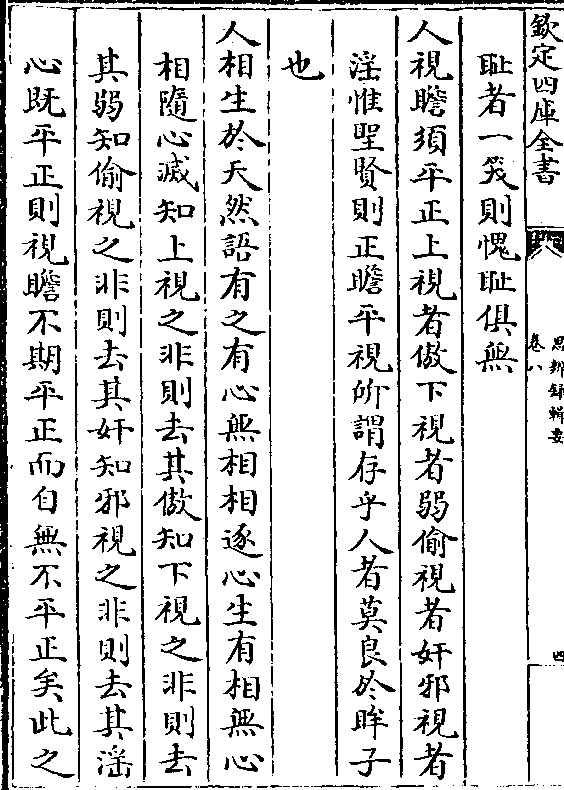 欽定四庫全書
思辨録輯要
卷八
四
恥者一笑則愧恥俱無
人視瞻須平正上視者傲下視者弱偷視者奸邪視者
淫惟聖賢則正瞻平視所謂存乎人者莫良於眸子
也
人相生於天然語有之有心無相相逐心生有相無心
相隨心滅知上視之非則去其傲知下視之非則去
其弱知偷視之非則去其奸知邪視之非則去其淫
心既平正則視瞻不期平正而自無不平正矣此之